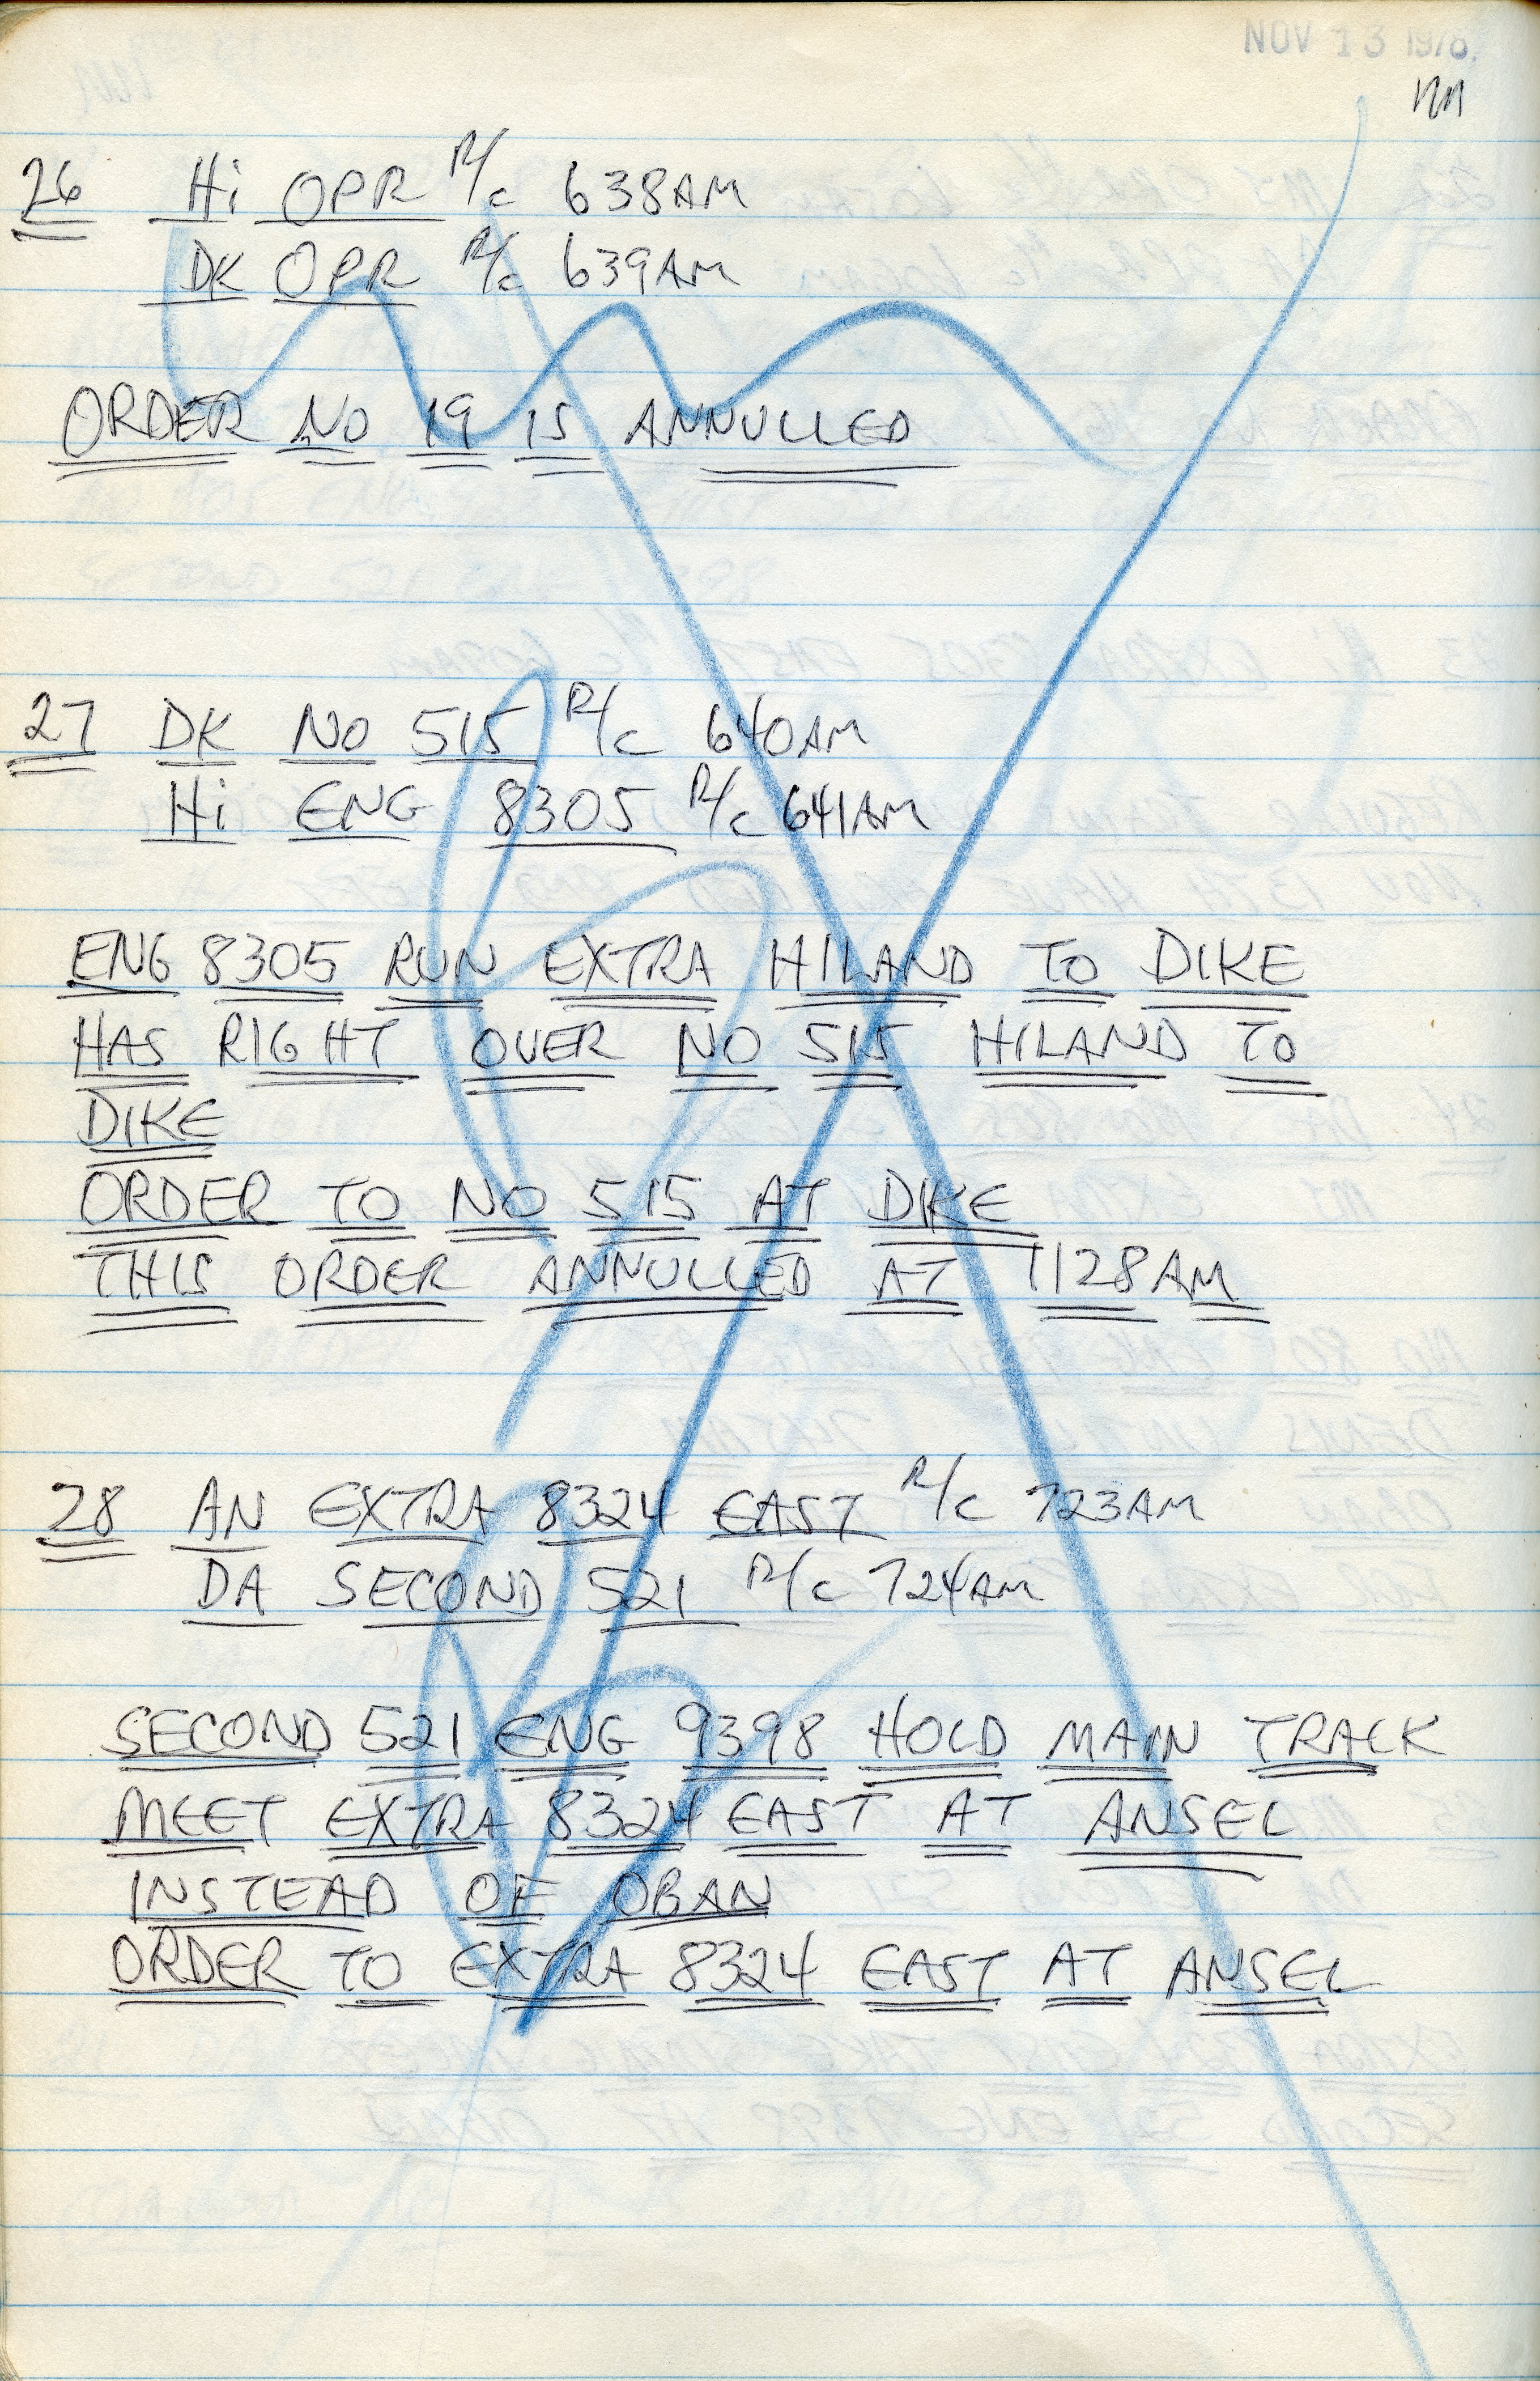 NOV 13 1978
26 Hi OPR R/c 638AM
DK OPR R/c 639AM
ORDER NO 19 IS ANNULLED
27 DK NO 515 R/c 640AM
Hi ENG 8305 R/c 641AM
ENG 8305 RUN EXTRA HILAND TO DIKE
HAS RIGHT OVER NO 515 HILAND TO
DIKE
ORDER TO NO 515 AT DIKE
THIS ORDER ANNULLED AT 1128AM
28 AN EXTRA 8324 EAST R/c 723AM
DA SECOND 521 R/c 724AM
SECOND 521 ENG 9398 HOLD MAIN TRACK
MEET EXTRA 8324 EAST AT ANSEL
INSTEAD OF OBAN
ORDER TO EXTRA 8324 EAST AT ANSEL